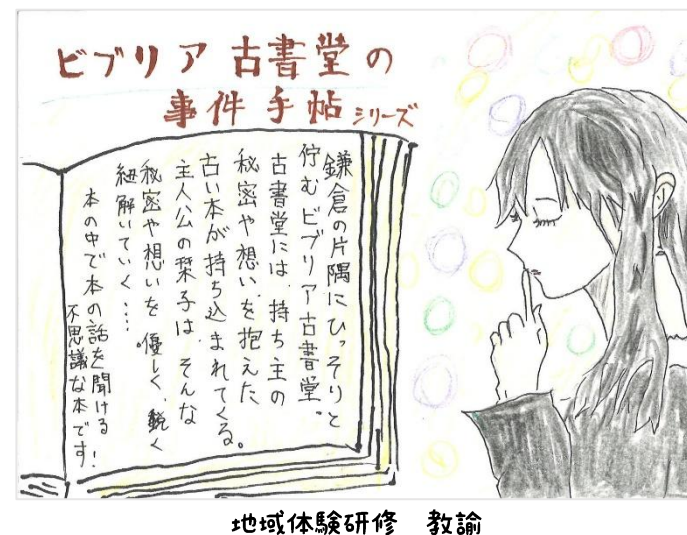 ビブリア古書堂の
事件手帖シリーズ
鎌倉の片隅にひっそりと
佇むビブリア古書堂。
古書堂には、持ち主の
秘密や想いを抱えた
古い本が持ち込まれてくる。
主人公の栞子は、そんな
秘密や想いを優しく、鋭く
紐解いていく…。
本の中で本の話を聞ける
不思議な本です！
地域体験研修　教諭